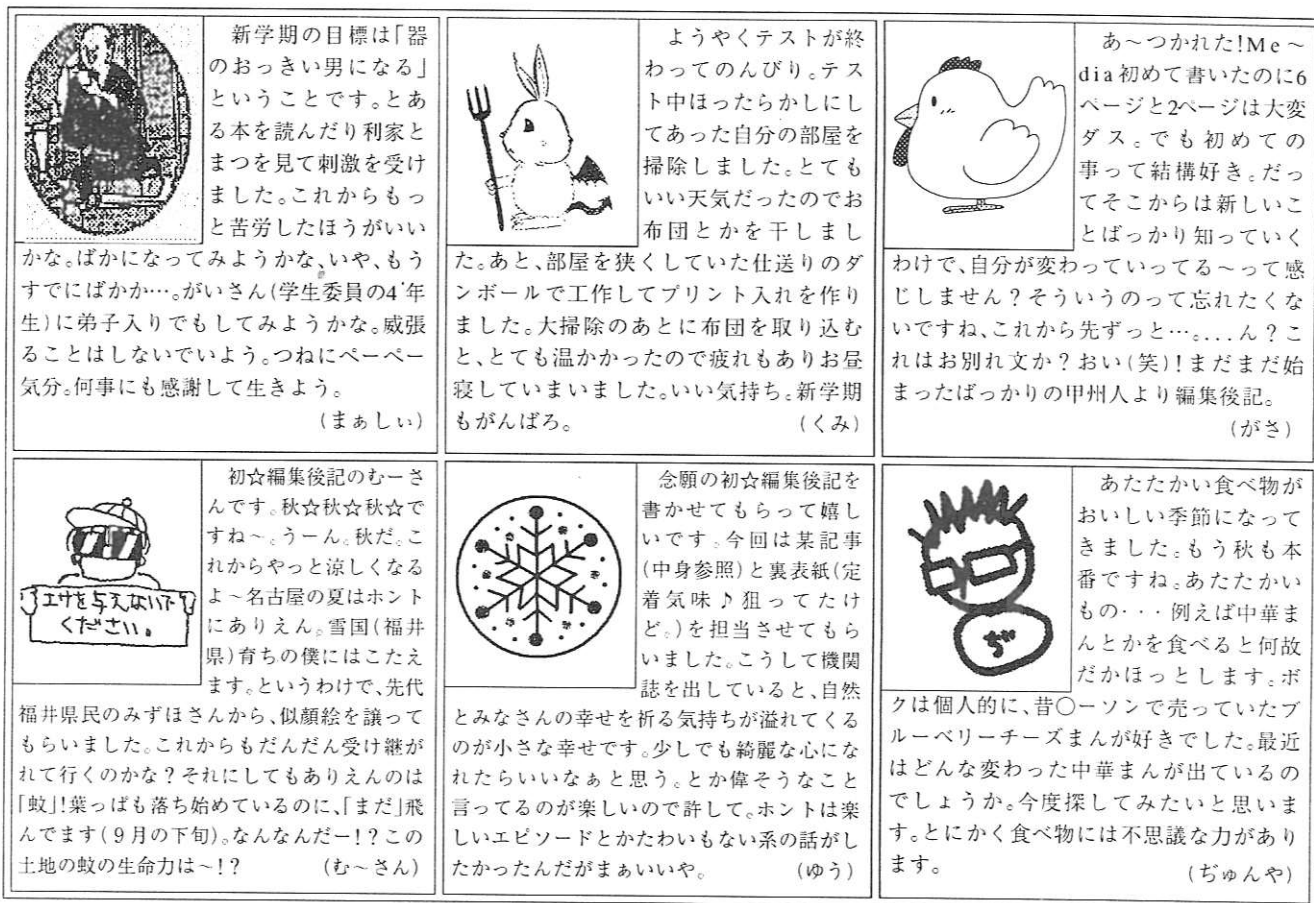 新学期の目標は「器
のおっきい男になる」
ということです。とあ
る本を読んだり利家と
まつを見て刺激を受け
ました。これからもっ
と苦労したほうがいい
かな。ばかになってみようかな、いや、もう
すでにばかか…。がいさん(学生委員の4年
生)に弟子入りでもしてみようかな。威張
ることはしないでいよう。つねにペーペー
気分。何事にも感謝して生きよう。
(まぁしぃ)
ようやくテストが終
わってのんびり。テス
ト中ほったらかしにし
てあった自分の部屋を
掃除しました。とても
いい天気だったのでお
布団とかを干しまし
た。あと、部屋を狭くしていた仕送りのダ
ンボールで工作してプリント入れを作り
ました。大掃除のあとに布団を取り込む
と、とても温かかったので疲れもありお昼
寝していまいました。いい気持ち。新学期
もがんばろ。 (くみ)
あ～つかれた!Me～
dia初めて書いたのに6
ページと2ページは大変
ダス。でも初めての
事って結構好き。だっ
てそこからは新しいこ
とばっかり知っていく
わけで、自分が変わっていってる～って感
じしません?そういうのって忘れたくな
いですね、これから先ずっと…。...ん?こ
れはお別れ文か?おい(笑)!まだまだ始
まったばっかりの甲州人より編集後記。
(がさ)
エサを与えないで
ください。
初☆編集後記のむーさ
んです。秋☆秋☆秋☆で
すね～。うーん。秋だ。こ
れからやっと涼しくなる
よ～名古屋の夏はホント
にありえん。雪国(福井
県)育ちの僕にはこたえ
ます。というわけで、先代
福井県民のみずほさんから、似顔絵を譲って
もらいました。これからもだんだん受け継が
れて行くのかな?それにしてもありえんのは
「蚊」!葉っぱも落ち始めているのに、「まだ」飛
んでます(9月の下旬)。なんなんだー!?この
土地の蚊の生命力は～!? (む～さん)
念願の初☆編集後記を
書かせてもらって嬉し
いです。今回は某記事
(中身参照)と裏表紙(定
着気味♪狙ってたけ
ど。)を担当させてもら
いました。こうして機関
誌を出していると、自然
とみなさんの幸せを祈る気持ちが溢れてくる
のが小さな幸せです。少しでも綺麗な心にな
れたらいいなぁと思う。とか偉そうなこと
言ってるのが楽しいので許して。ホントは楽
しいエピソードとかたわいもない系の話がし
たかったんだがまぁいいや。 (ゆう)
ぢ
あたたかい食べ物が
おいしい季節になって
きました。もう秋も本
番ですね。あたたかい
もの・・・例えば中華ま
んとかを食べると何故
だかほっとします。ボ
クは個人的に、昔○ーソンで売っていたブ
ルーベリーチーズまんが好きでした。最近
はどんな変わった中華まんが出ているの
でしょうか。今度探してみたいと思いま
す。とにかく食べ物には不思議な力があり
ます。 (ぢゅんや)